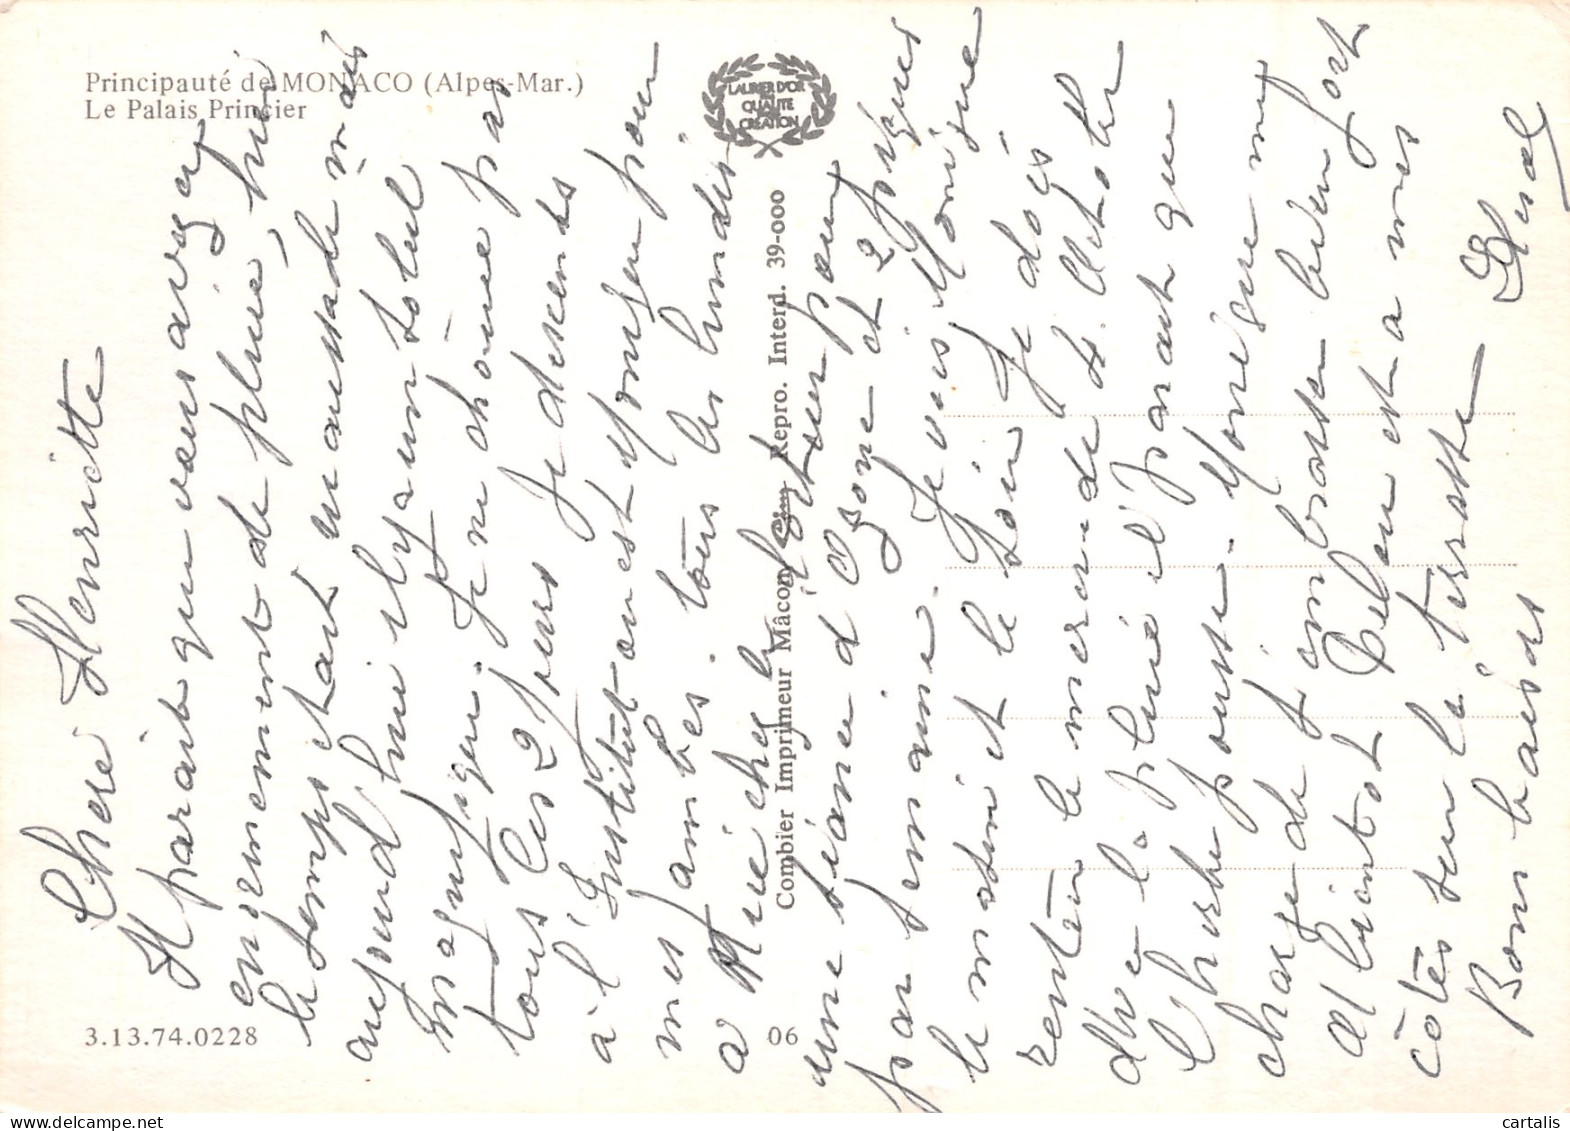 Principauté de MONACO (Alpes-Mar.)
Le Palais Princier
LAURIER D'OR
QUALITE
CREATION
Combier Imprimeur Mâcon Cim Repro. Interd. 39-000
3.13.74.0228
06
Chère Henriette
Il parait que vous avez eu
enormement de pluie, hier
le temps etait maussade mais
aujourd'hui il y a un soleil
magnifique. Je ne chome pas
tous les 2 jours je descends
à l'Institut on est Monseu pour
mes jambes. tous les lundis
a Nice chez le docteur pour
une séance d'Ozone et 2 piqures
par semaine. Je vois Monique
le matin et le soir Je dois
rentrer le mercredi 4 Octobre
avec la pluie il parait que
l'herbe pousse. Monique me
charge de t'embrasser bien fort
A bientot Chleu est a mes
côtés sur la terrasse
Bons baisers
cartalis